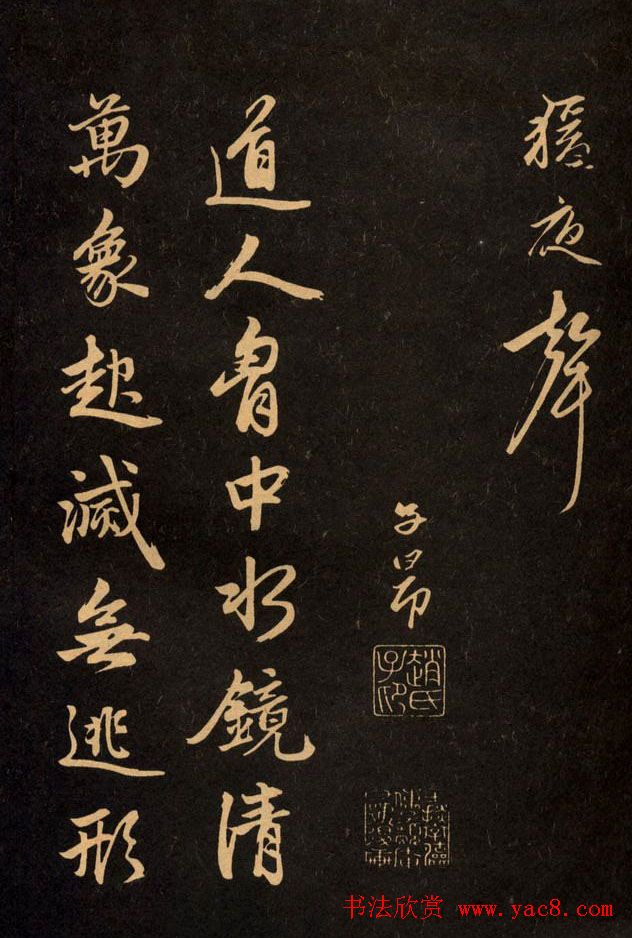 猿夜聲
子昂
趙氏子昂
道人胷中水鏡清
萬象起滅無逃形
书法欣赏 www.yac8.com